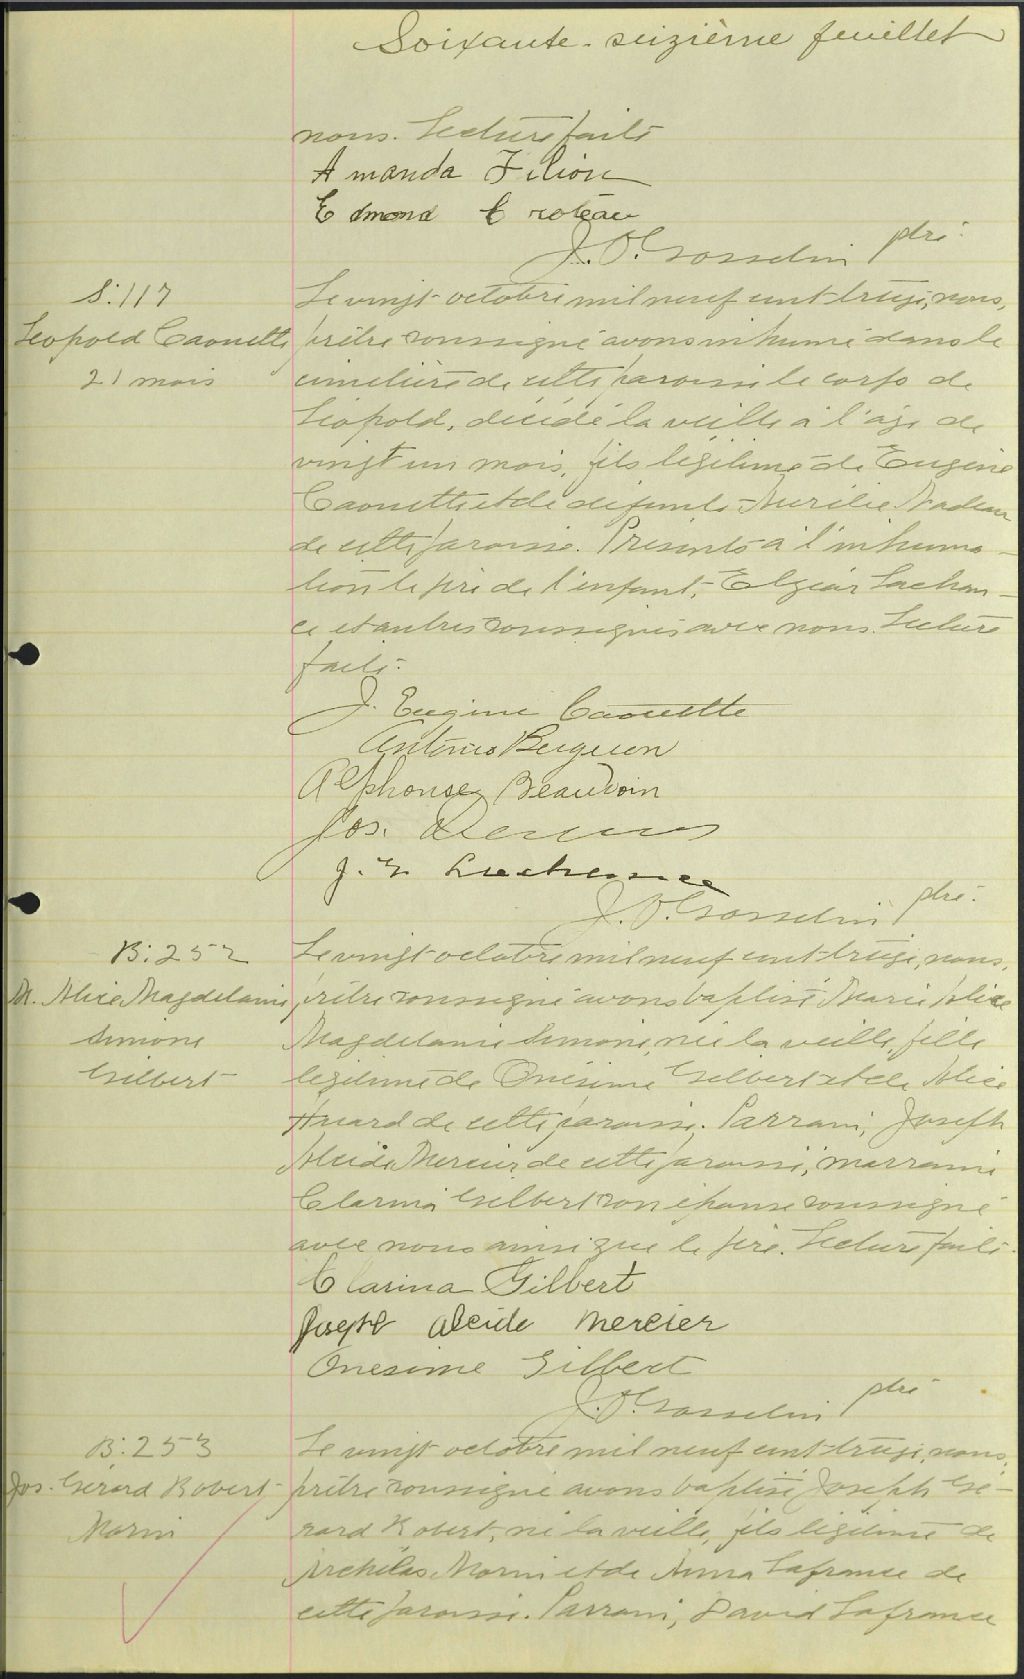 Soixante-seizième feuillet
nous. Lecture faite
Amanda Filion
Edmond Croteau
J. O. Gosselin ptre.
S: 117
Léopold Caouette
21 mois
Le vingt octobre mil neuf cent treize, nous,
prêtre soussigné avons inhumé dans le
cimetière de cette paroisse le corps de
Léopold, décédé la veille à l'âge de
vingt un mois, fils légitime de Eugène
Caouette et de défunte Aurélie Nadeau
de cette paroisse. Présents à l'inhuma-
tion le père de l'enfant, Elzéar Lachan-
ce et autres soussignés avec nous. Lecture
faite.
J. Eugène Caouette
Antonio
Alphonse Beaudoin
Jos.
J. E. Lachance
J. O. Gosselin ptre.
B: 252
M. Alice Magdelaine
Simone
Gilbert
Le vingt octobre mil neuf cent treize, nous,
prêtre soussigné avons baptisé Marie Alice
Magdelaine Simone, née la veille, fille
légitime de Onésime Gilbert et de Alice
Huard de cette paroisse. Parrain, Joseph
Alcide Mercier de cette paroisse, marraine
Clarina Gilbert son épouse soussigné
avec nous ainsi que le père. Lecture faite.
Clarina Gilbert
Joseph Alcide Mercier
Onesime Gilbert
J. O. Gosselin ptre
B: 253
Jos. Gérard Robert
Morin
Le vingt octobre mil neuf cent treize, nous,
prêtre soussigné avons baptisé Joseph Gé-
rard Robert, né la veille, fils légitime de
Archélas Morin et de Anna Lafrance de
cette paroisse. Parrain, David Lafrance